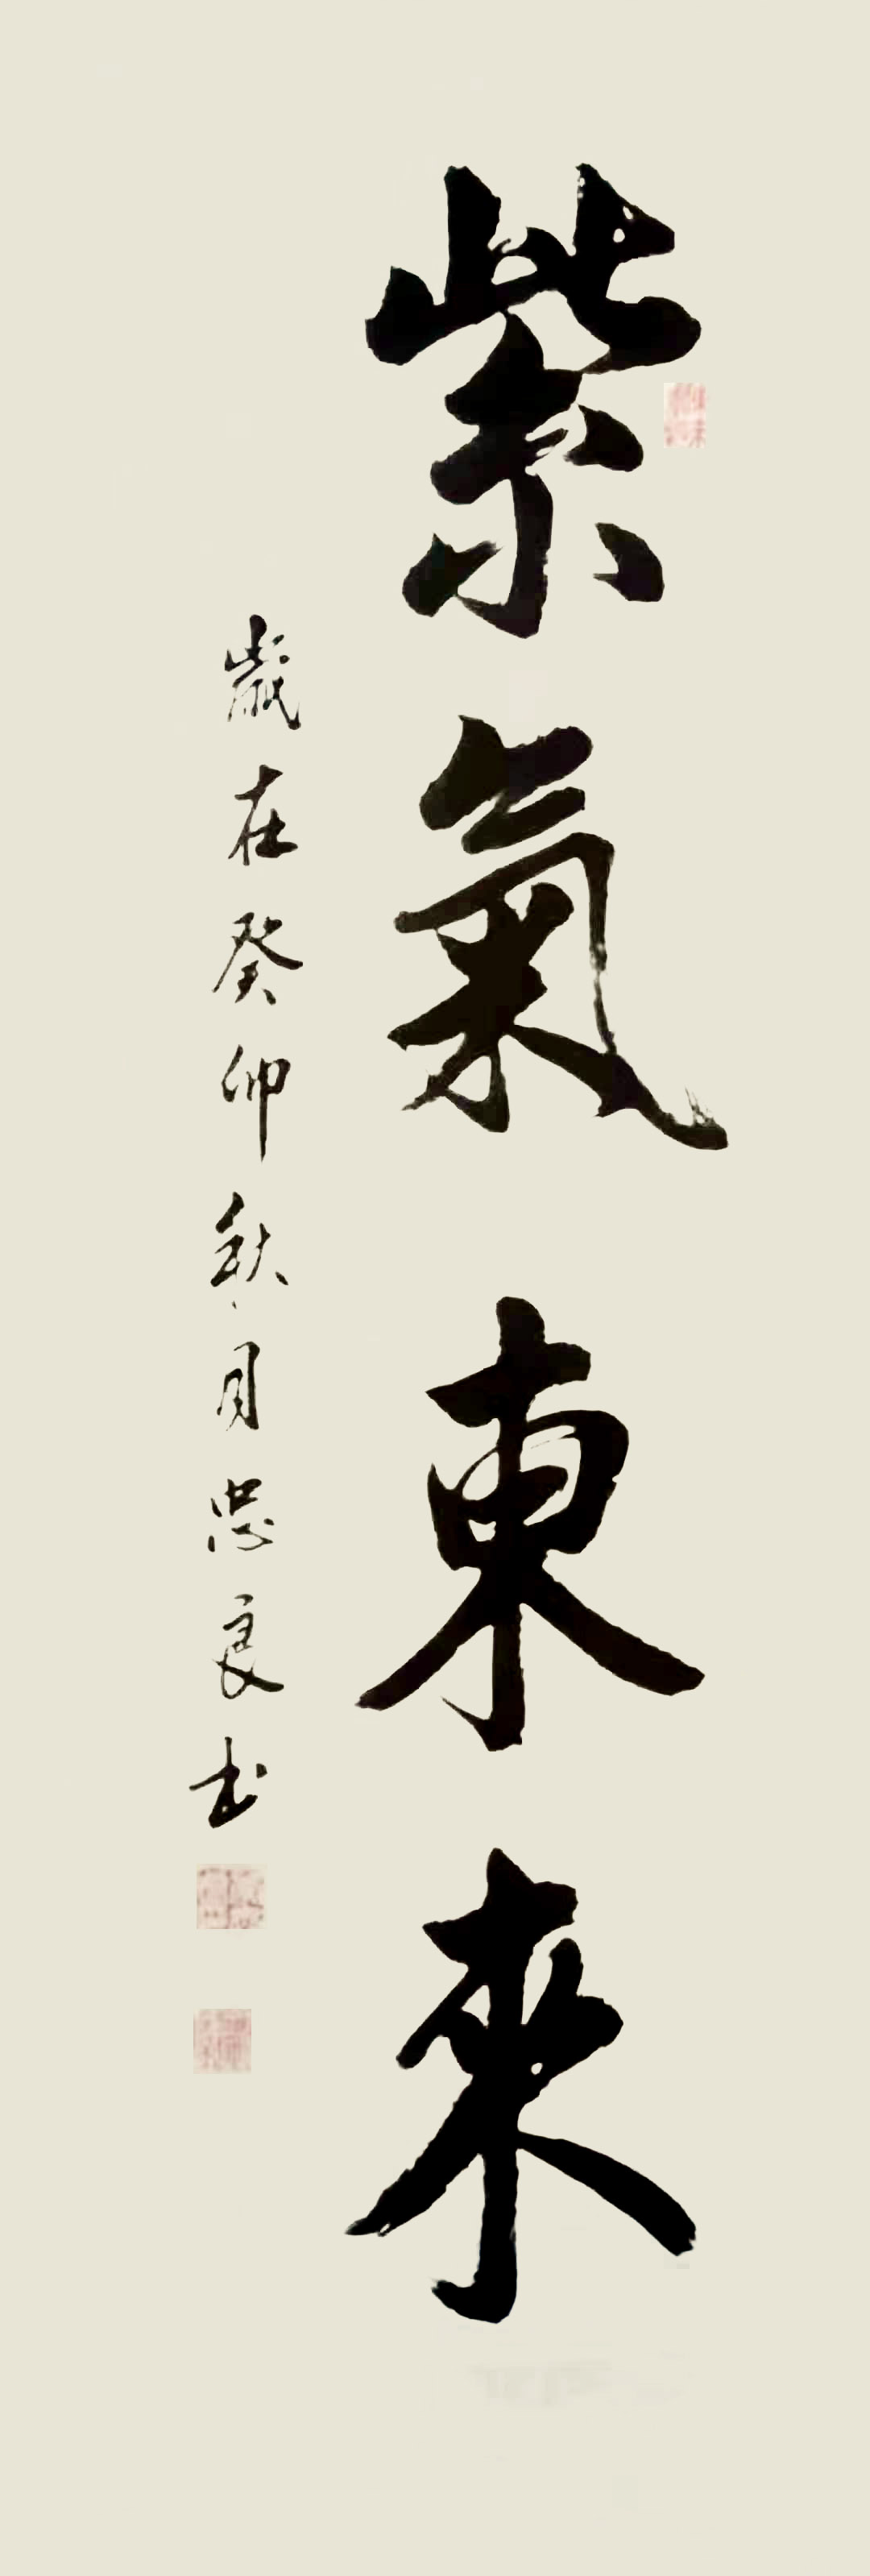 紫氣東來
歲在癸卯秋月忠良书